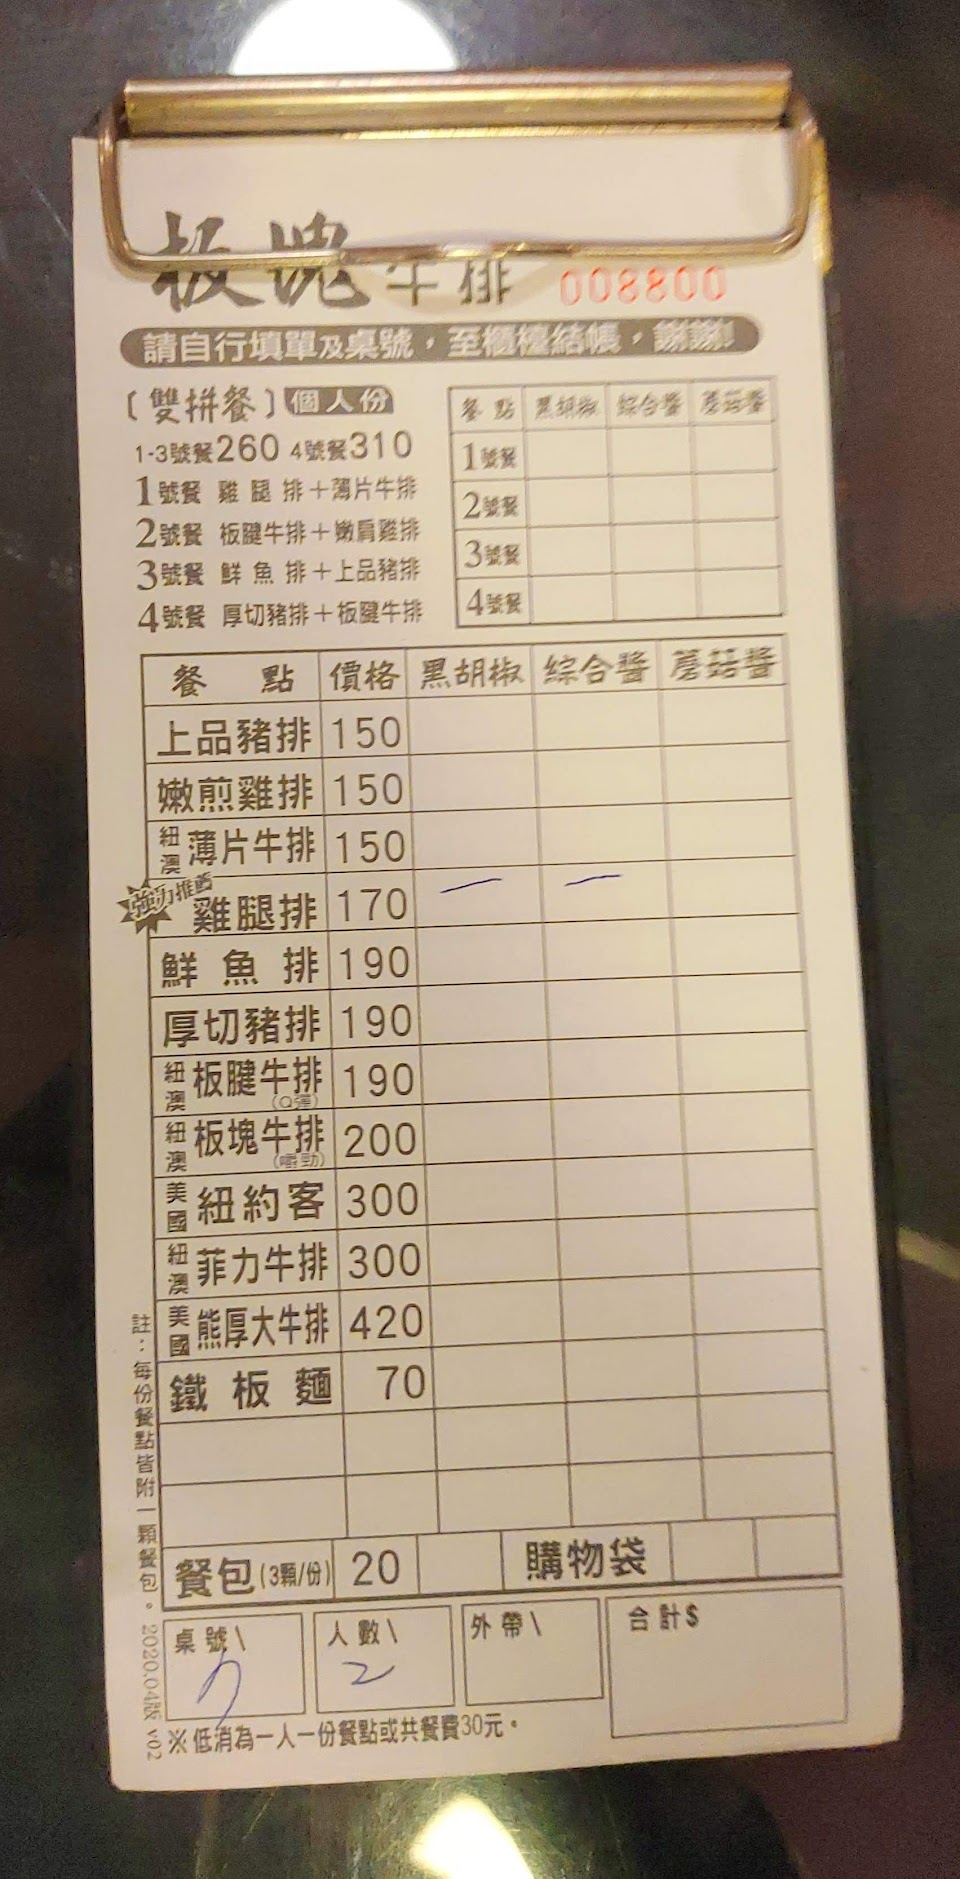 板塊牛排 008800
請自行填單及桌號，至櫃檯結帳，謝謝!
〔雙拼餐〕個人份
1-3號餐260 4號餐310
1號餐 雞腿排＋薄片牛排
2號餐 板腱牛排＋嫩肩雞排
3號餐 鮮魚排＋上品豬排
4號餐 厚切豬排＋板腱牛排
餐點 黑胡椒 綜合醬 蘑菇醬
1號餐
2號餐
3號餐
4號餐
餐點 價格 黑胡椒 綜合醬 蘑菇醬
上品豬排 150
嫩煎雞排 150
紐澳 薄片牛排 150
強力推薦 雞腿排 170 一 一
鮮魚排 190
厚切豬排 190
紐澳 板腱牛排(Q彈) 190
紐澳 板塊牛排(嚼勁) 200
美國 紐約客 300
紐澳 菲力牛排 300
美國 熊厚大牛排 420
鐵板麵 70
餐包(3顆/份) 20 購物袋
桌號\ 人數\ 2 外帶\ 合計$
※低消為一人一份餐點或共餐費30元。
註：每份餐點皆附一顆餐包。2020.04版 v02